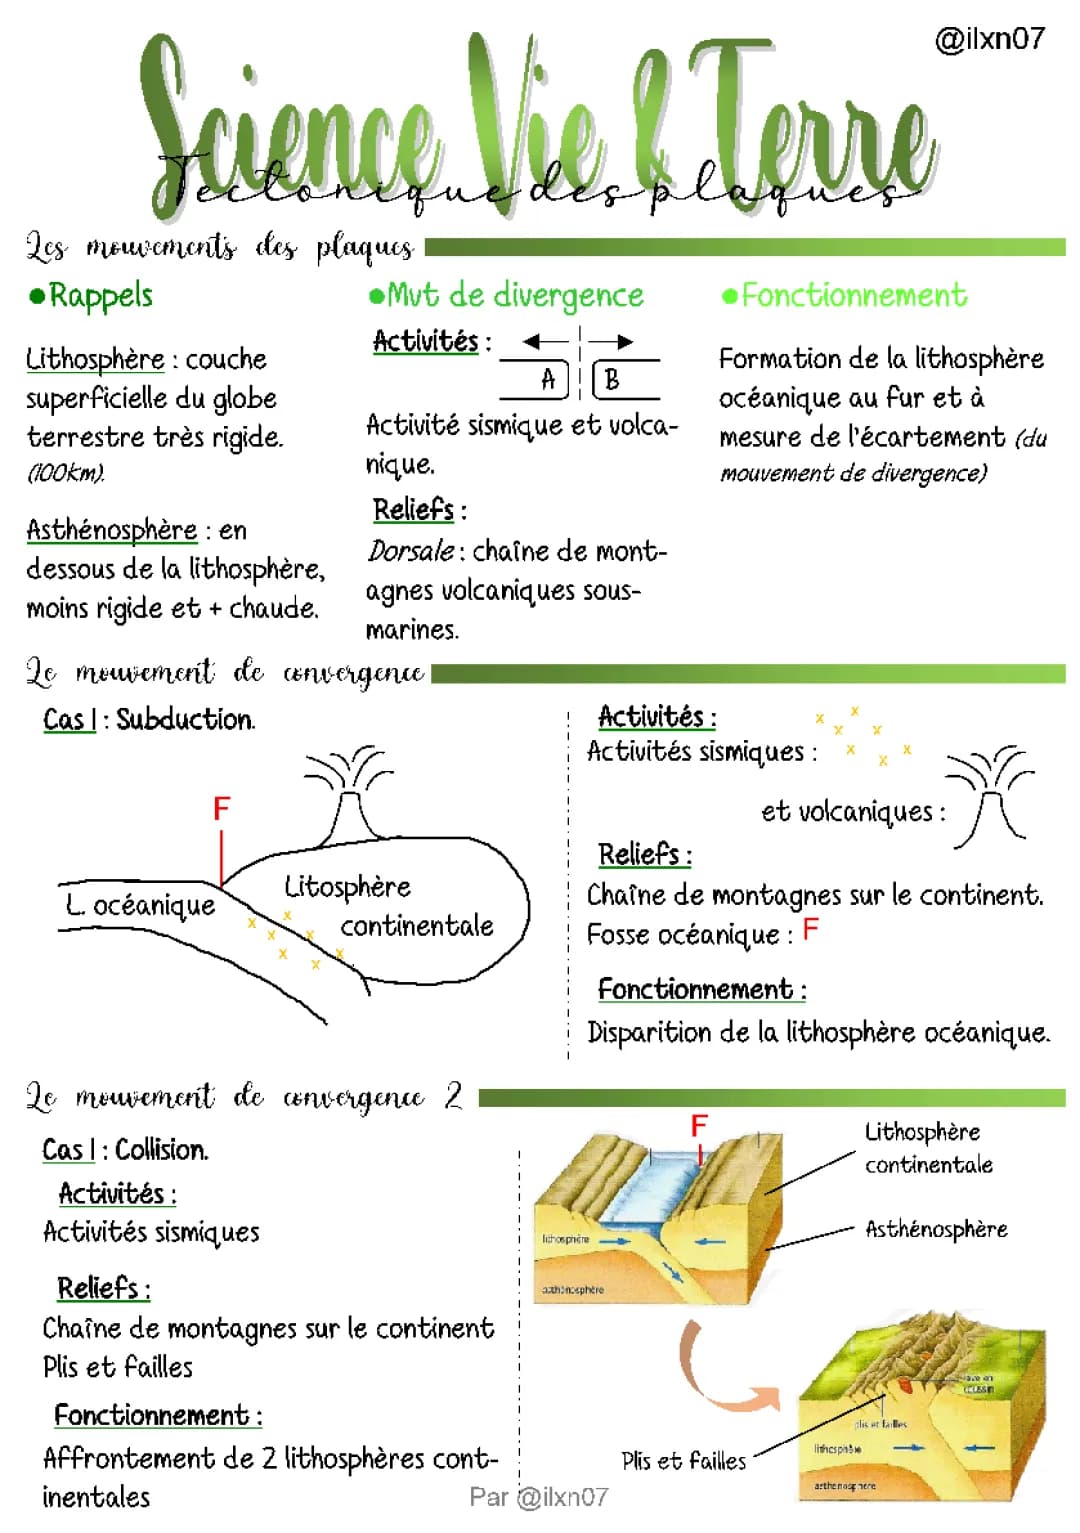 @ilxn07
Science Vie & Terre
Tectonique des plaques
Les mouvements des plaques
•Rappels
Lithosphère : couche
superficielle du globe
terrestre très rigide.
(100km).
Asthénosphère : en
dessous de la lithosphère,
moins rigide et + chaude.
•Mvt de divergence
Activités :
A B
Activité sismique et volca-
nique.
Reliefs :
Dorsale : chaîne de mont-
agnes volcaniques sous-
marines.
•Fonctionnement
Formation de la lithosphère
océanique au fur et à
mesure de l'écartement (du
mouvement de divergence)
Le mouvement de convergence
Cas 1 : Subduction.
F
L. océanique
Litosphère
continentale
Activités :
Activités sismiques :
et volcaniques :
Reliefs :
Chaîne de montagnes sur le continent.
Fosse océanique : F
Fonctionnement :
Disparition de la lithosphère océanique.
Le mouvement de convergence 2
Cas 1 : Collision.
Activités :
Activités sismiques
Reliefs :
Chaîne de montagnes sur le continent
Plis et failles
Fonctionnement :
Affrontement de 2 lithosphères cont-
inentales
F
Lithosphère
continentale
Asthénosphère
lithosphère
asthénosphère
plis et failles
lithosphère
asthénosphère
Plis et failles
Par @ilxn07